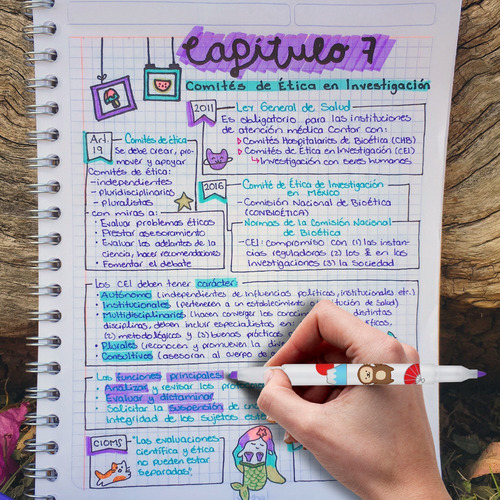 Capítulo 7
Comités de Ética en Investigación
2011
Ley General de Salud
Es obligatorio para las instituciones
de atención médica contar con:
Comités Hospitalarios de Bioética (CHB)
Comités de Ética en Investigación (CEI)
Investigación con seres humanos
Art.
19
Comités de ética
Se debe crear, pro-
mover y apoyar
Comités de ética:
-independientes
-pluridisciplinarios
-pluralistas
-con miras a:
· Evaluar problemas éticos
· Prestar asesoramiento
· Evaluar los adelantos de la
ciencia, hacer recomendaciones
· Fomentar el debate
2016
Comité de Ética de Investigación
en México
-Comisión Nacional de Bioética
(CONBIOÉTICA)
Normas de la Comisión Nacional
de Bioética
-CEI: compromiso con (1) las instan-
cias reguladoras (2) los & en las
investigaciones (3) la Sociedad
Los CEI deben tener carácter:
· Autónomo (independientes de influencias políticas, institucionales etc.)
· Institucionales (pertenecen a un establecimiento o institución de Salud)
· Multidisciplinarios (hacen converger los distintas
disciplinas, deben incluir especialistas en
(2) metodológicos y (3) buenas prácticas
· Plurales (reconocen y promueven la
· Consultivos (asesoran al cuerpo de
Las funciones principales
· Analizar y revisar los
· Evaluar y dictaminar
· Solicitar la suspensión de
integridad de los sujetos
CIOMS
"Las evaluaciones
científica y ética
no pueden estar
separadas".